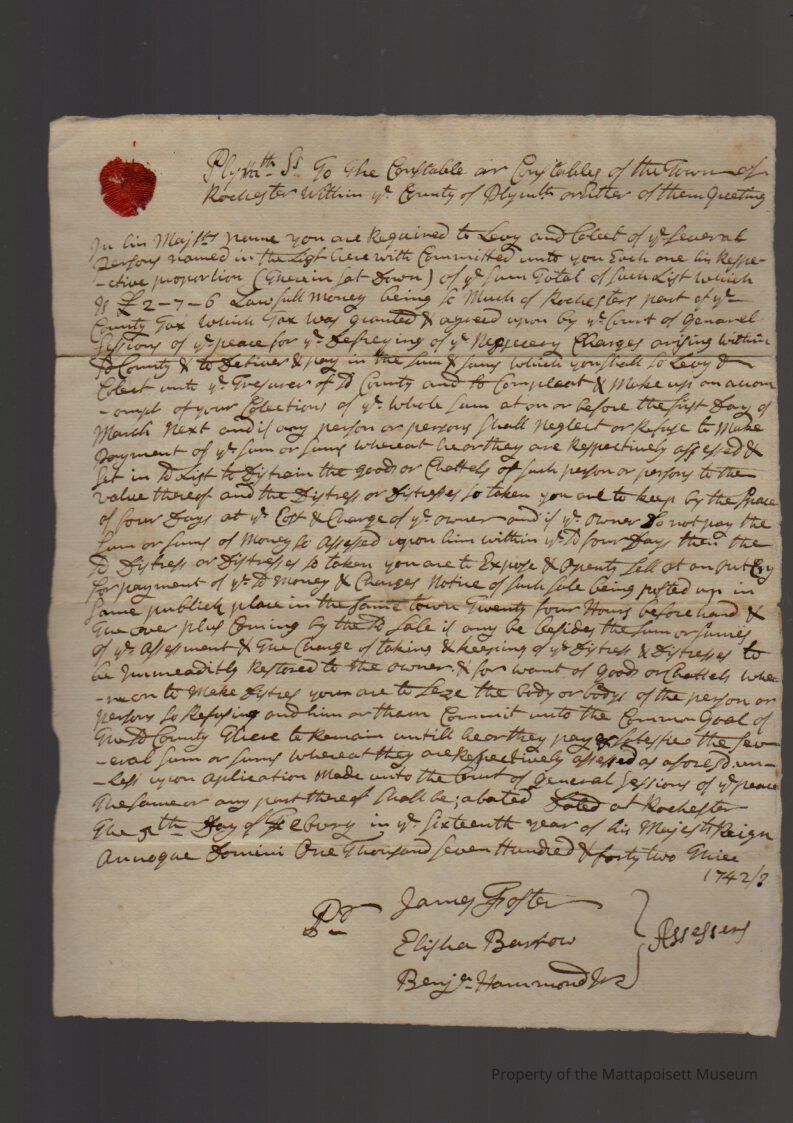 Plymth Ss To The Constable or Constables of the Town of
Rochester Within ye County of Plymth or Either of them Greeting
In his Majtts name you are Required to Levy and Colect of ye several
persons named in the List here with Committed unto you Each one his Respe-
-ctive proportion (therein sat Down) of ye sum Total of such List which
Is £ 2-7-6 Lawfull money being so Much of Rochesters part of ye
County Tax Which Tax was granted & agreed upon by ye Court of Genarel
Sessions of ye peace for ye Defreying of ye Nessecery Charges arising within
sd County & to Deliver & pay in the sum & sums which you shall so Levy &
Colect unto ye Tresurer of sd County and to Compleat & Make up an accom
-ompt of your Colections of ye whole sum at on or before the first Day of
March Next and if any person or persons shall Neglect or Refuse to Make
payment of ye sum or sums whereat he or they are Respectively assesed &
set in sd List to Distrain the goods or Chattels of such person or persons to the
value thereof and the Distress or Distresses so taken you are to keep by the space
of four Days at ye Cost & Charge of ye owner and if ye owner Do not pay the
sum or sums of Money so Assesed upon him within ye sd four Days then the
sd Distress or Distresses so taken you are to Expose & openly sell at an out Cry
for payment of ye sd Money & Charges Notice of such sale being posted up in
some publick place in the same town Twenty four Hours before hand &
the over plus Coming by the sd sale if any be besides the sum or sumes
of ye Assesment & the Charge of taking & keeping of ye Distress & Distresses to
be Immeaditly Restored to the owner & for want of goods or Chattels wher-
-upon to Make Distres your are to Seze the body or bodys of the person or
persons so Refusing and him or tham Commit unto the Common Goal of
the sd County there to Remain untill he or they pay & satesfie the sev-
-eral sum or sums whereat they are Respectively assesed as afore sd un-
-less upon application Made unto the Court of General Sessions of ye peace
the same or any part thereof shall be abated Dated at Rochester
the 5th Day of Febury in ye sixteenth year of his Majests Reign
Annoque Domini One Thousand seven Hundred & forty two three
1742/3
Pr
James Foster
Elisha Barrow
Benjn Hammond Jr
Assessers
Property of the Mattapoisett Museum